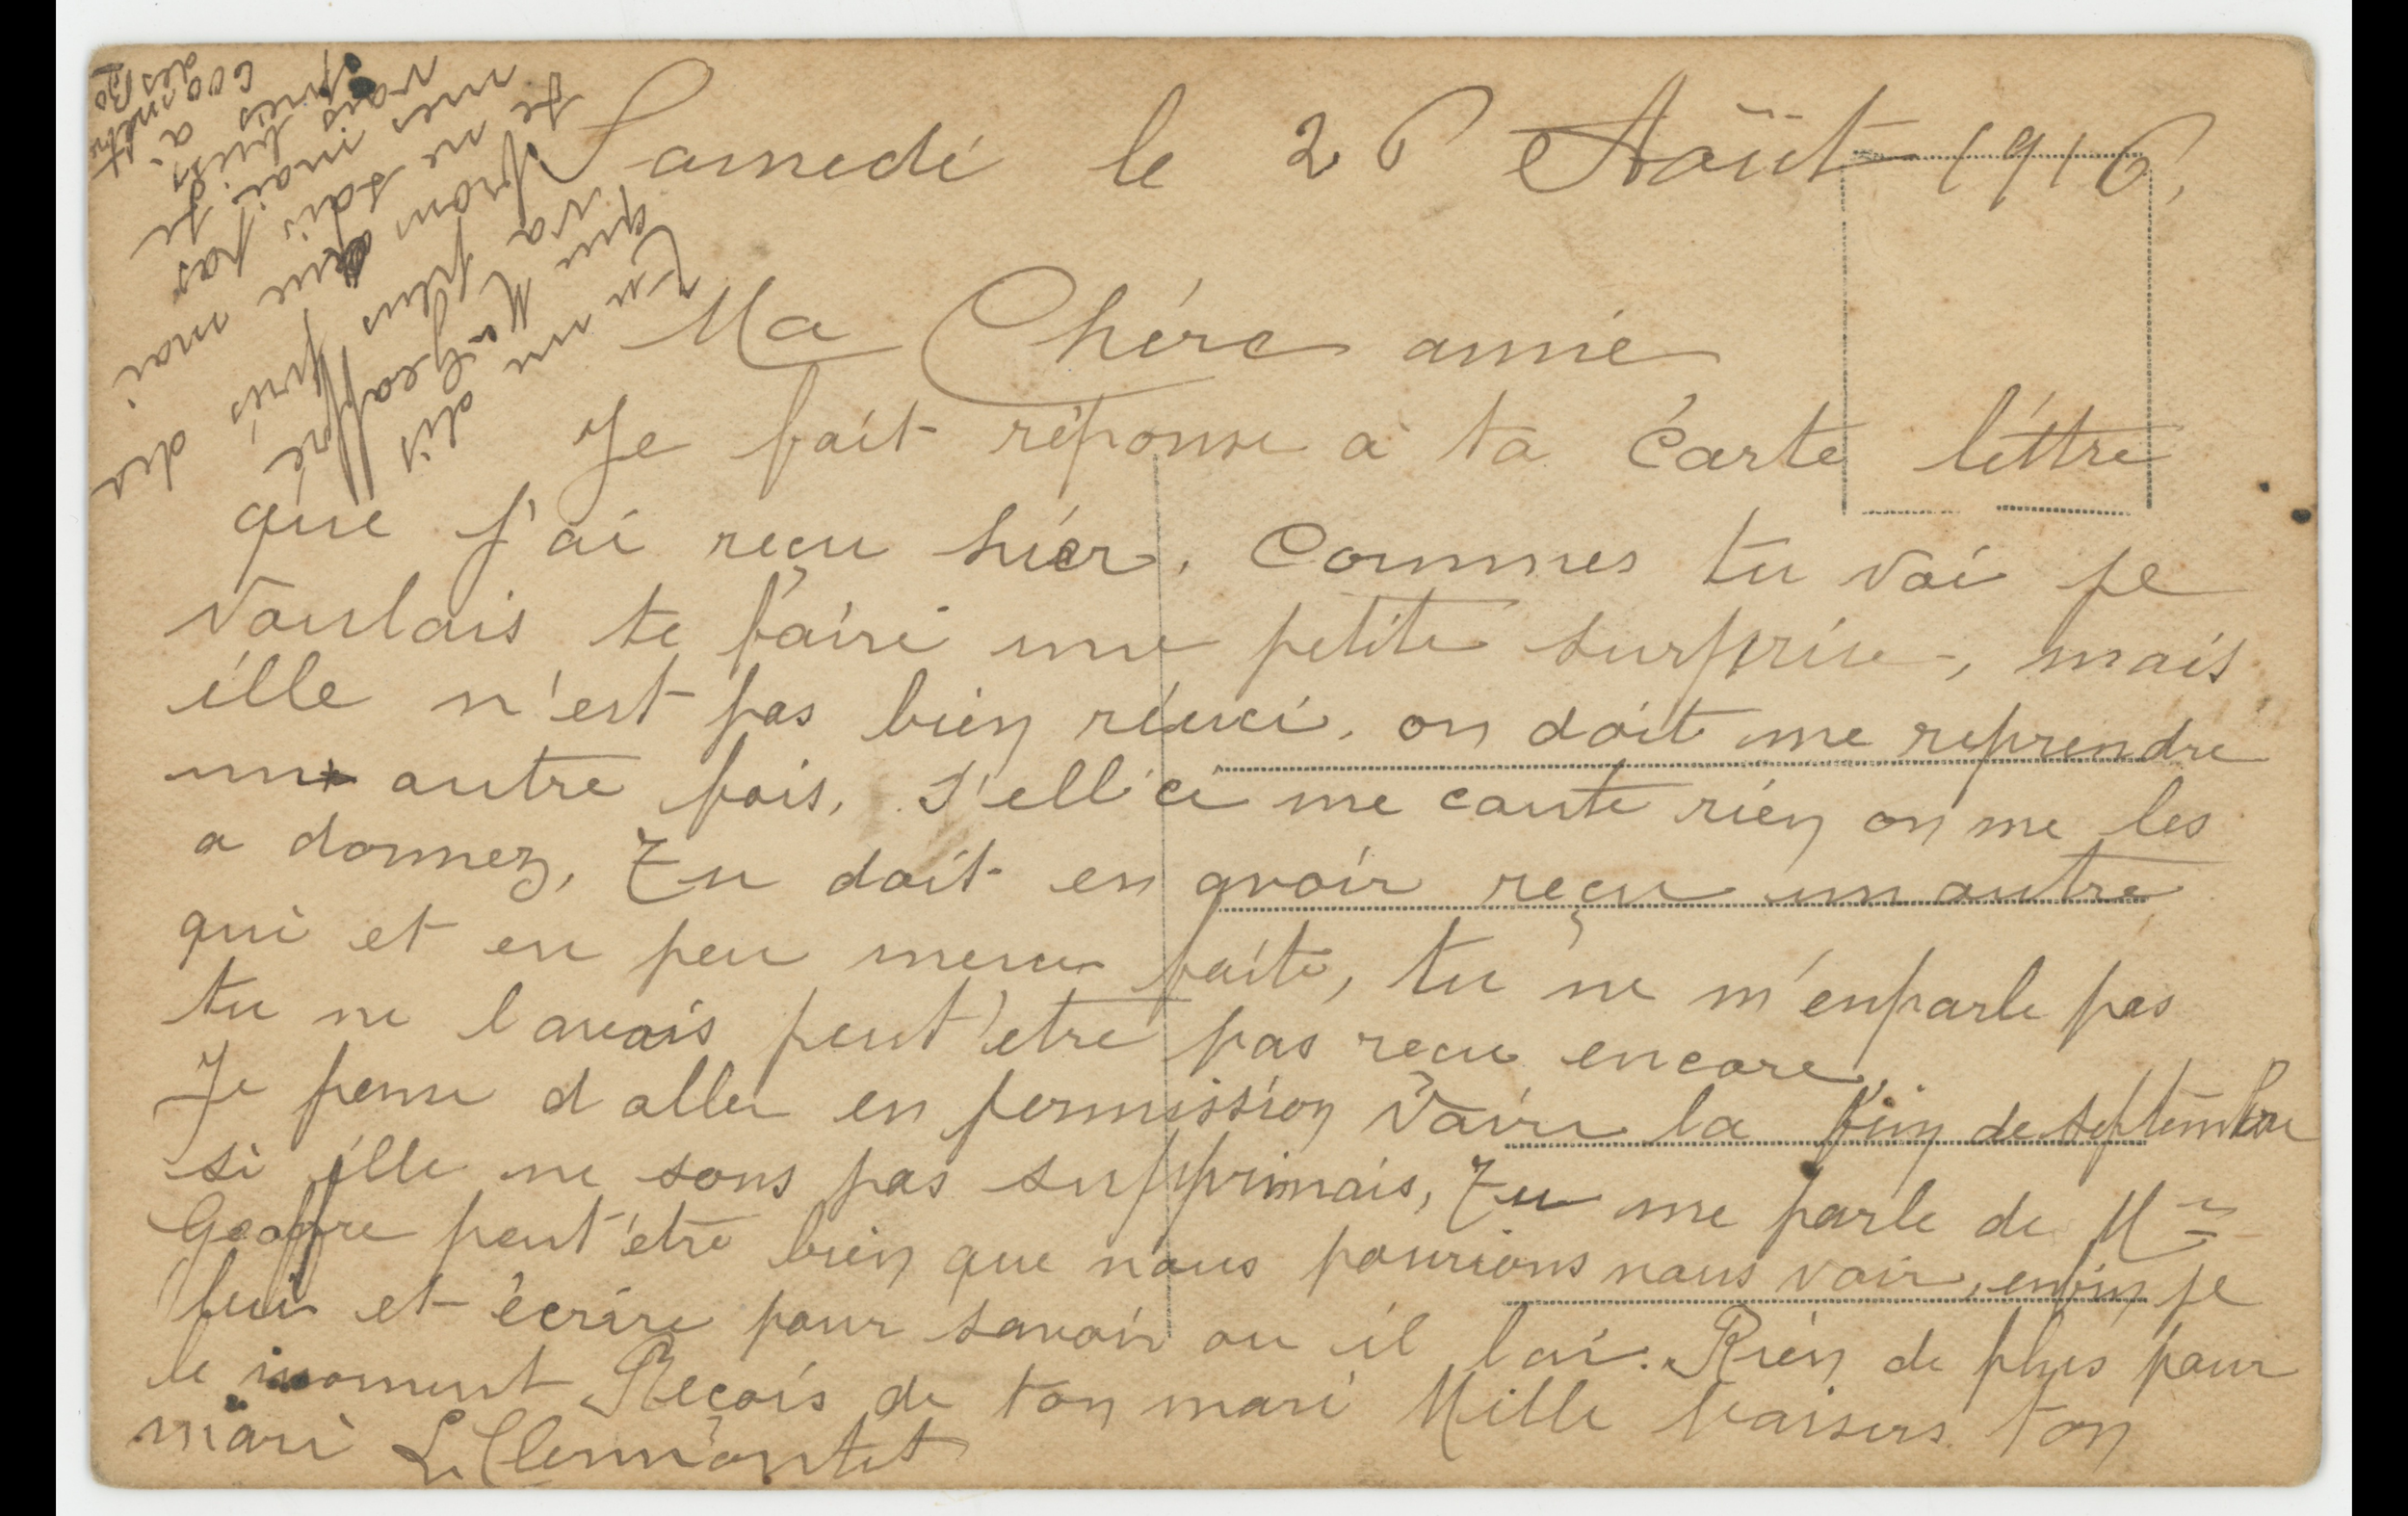 Samedi le 26 Août 1916,
Ma Chére amie
Je fait réponse a ta Carte léttre
que j'ai reçu hiér. Commes tu voi je
voulais te faire une petite surprise, mais
ille n'est pas bien réuci. on doit me reprendre
une autre fois. S'ell ci me coute rién on me les
a donnez, Tu doit en avoir reçu un autre
qui et en peu mieux faite, tu ne m'enparle pas
tu ne lavais peut'etre pas recu encore.
Je pense d aller en permission vairs la fin de septembre
si ille ne sons pas supprimais, Tu me parle de Mr
Geoffre peut'être bien que nous pourions nous voir, enfin je
lui et écrire pour savoir ou il lai. Rién de plus pour
le moment Reçois de ton mari Mille baisers ton
mari L. Clermontet
Tu me dis
que Mr Geoffre
va plus prés du
front que moi
Je ne sais pas
mes moi je
vais
prés
a
600 métre
des Bo